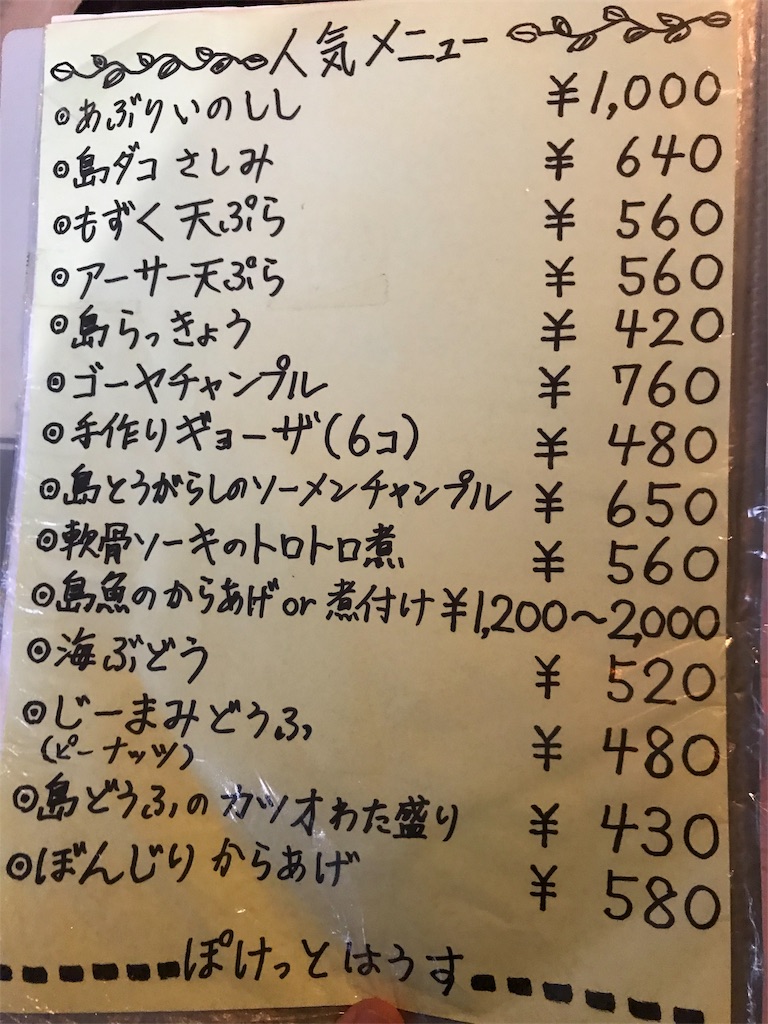 人気メニュー
◎あぶりいのしし ¥1,000
◎島ダコ さしみ ¥ 640
◎もずく天ぷら ¥ 560
◎アーサー天ぷら ¥ 560
◎島らっきょう ¥ 420
◎ゴーヤチャンプル ¥ 760
◎手作りギョーザ(6コ) ¥ 480
◎島とうがらしのソーメンチャンプル ¥ 650
◎軟骨ソーキのトロトロ煮 ¥ 560
◎島魚のからあげ or 煮付け ¥1,200〜2,000
◎海ぶどう ¥ 520
◎じーまみどうふ ¥ 480
(ピーナッツ)
◎島どうふのカツオわた盛り ¥ 430
◎ぼんじりからあげ ¥ 580
ぽけっとはうす